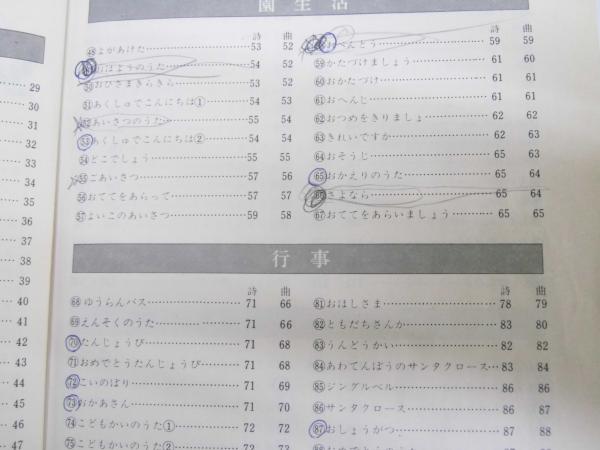 園生活
詩 曲
㊽よがあけた 53 52
㊾おはようのうた 54 52
㊿おひさまきらきら 53 52
51あくしゅでこんにちは① 54 53
52あいさつのうた 55 54
53あくしゅでこんにちは② 54 53
54どこでしょう 55 55
55ごあいさつ 57 56
56おててをあらって 57 57
57よいこのあいさつ 59 58
詩 曲
58おべんとう 59 59
59かたづけましょう 61 60
60おかたづけ 61 60
61おへんじ 61 61
62おつめをきりましょ 62 62
63きれいですか 62 63
64おそうじ 65 63
65おかえりのうた 65 64
66さよなら 65 64
67おててをあらいましょう 65 65
行事
詩 曲
68ゆうらんバス 71 66
69えんそくのうた 71 66
70たんじょうび 71 68
71おめでとうたんじょうび 71 68
72こいのぼり 71 69
73おかあさん 71 70
74こどもかいのうた① 72 72
75こどもかいのうた② 72 73
詩 曲
81おはしさま 78 79
82ともだちさんか 83 80
83うんどうかい 82 82
84あわてんぼうのサンタクロース 83 84
85ジングルベル 86 86
86サンタクロース 86 87
87おしょうがつ 87 88
29
30
31
31
32
33
34
35
36
38
39
40
41
42
43
44
45
46
47